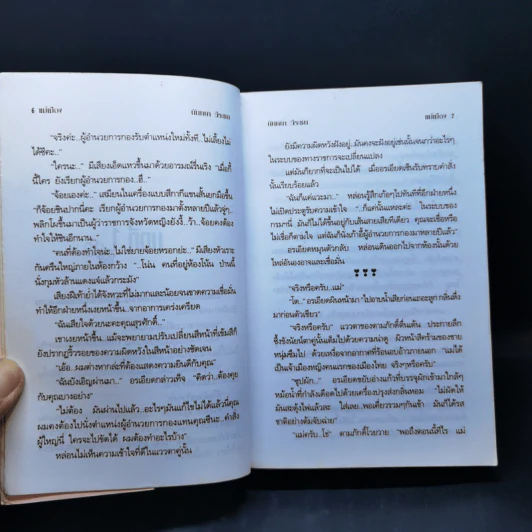 ๖ แม่เมือง กันยมา วีระเมธ
"จริงค่ะ..ผู้อำนวยการกองรับตำแหน่งใหม่ทั้งที..ไม่เลี้ยงไม่
ได้ซีคะ.."
"ใครนะ.." มีเสียงเอ็ดแหวขึ้นมาด้วยอารมณ์รื่นเริง "เมื่อกี้
นี้ใคร ยังเรียกผู้อำนวยการกอง..ฮึ."
"จ้อยเองค่ะ.." เสมียนในเครื่องแบบสีกากีแขนสั้นยกมือขึ้น
"ก็จ้อยชินปากนี่คะ เรียกผู้อำนวยการกองมาตั้งหลายปีแล้วจู่ๆ..
พลิกโผขึ้นมาเป็นผู้ว่าราชการจังหวัดหญิงยังงี้..ว้า..จ้อยคงต้อง
ทำใจให้ชินอีกนาน.."
"คนที่ต้องทำใจน่ะ..ไม่ใช่ยายจ้อยหรอกย่ะ.." มีเสียงหัวเราะ
กันครืนใหญ่ภายในห้องกว้าง "..โน่น คนที่อยู่ห้องโน้น ป่านนี้
นั่งกุมหัวล้านแดงแจ๋แล้วกระมัง"
เสียงฝีเท้าย่ำได้จังหวะที่ไม่มากและน้อยจนขาดความเชื่อมั่น
ทำให้อีกฝ่ายหนึ่งเงยหน้าขึ้น จากอาการเคร่งเครียด
"ฉันเสียใจด้วยนะคะคุณสุรศักดิ์.."
เขาเงยหน้าขึ้น. แม้จะพยายามปรับเปลี่ยนสีหน้าที่เข้มสีก็
ยังปรากฏริ้วรอยของความผิดหวังในสีหน้าอย่างชัดเจน
"เอ้อ..ผมต่างหากล่ะที่ต้องแสดงความยินดีกับคุณ"
"ฉันบังเอิญผ่านมา.." อรเอียดกล่าวเท็จ "คิดว่า..ต้องคุย
กับคุณบางอย่าง"
"ไม่ต้อง มันผ่านไปแล้ว..อะไรๆมันแก้ไขไม่ได้แล้วนี่คุณ
ผมคงต้องไปนั่งตำแหน่งผู้อำนวยการกองแทนคุณซีนะ..คำสั่ง
ผู้ใหญ่นี่ ใครจะไปขัดได้ ผมต้องทำอะไรบ้าง"
หล่อนไม่เห็นความเข้าใจที่ดีในแววตาคู่นั้น
กันยมา วีระเมธ แม่เมือง ๗
ยังมีความผิดหวังฝังอยู่..มันคงจะฝังอยู่เช่นนั้นจนกว่าอะไรๆ
ในระบบของทางราชการจะเปลี่ยนแปลง
แต่มันก็ยากที่จะเป็นไปได้ เมื่ออรเอียดเซ็นรับทราบคำสั่ง
นั้นเรียบร้อยแล้ว
"ฉันก็แค่แวะมา.." หล่อนรู้สึกเก้อๆไปทันทีที่อีกฝ่ายหนึ่ง
ไม่เปิดประตูรับความเข้าใจ "..ก็แค่นั้นแหละค่ะ ในระบบของ
กรมฯนี้ มันก็ไม่ดีขึ้นอยู่กับเส้นสายเสียทีเดียว คุณจะเชื่อหรือ
ไม่เชื่อก็ตามใจ แต่ฉันก็นั่งเก้าอี้ผู้อำนวยการกองมาหลายปีแล้ว"
อรเอียดหมุนตัวกลับ หล่อนเดินออกไปจากห้องนั้นด้วย
ไหล่อันองอาจและเชื่อมั่น
"จริงหรือครับ..แม่"
"โต.." อรเอียดผันหน้ามา "ไปอาบน้ำเสียก่อนเถอะลูก กลิ่นลิ่ง
มาก่อนตัวเชียว"
"จริงหรือครับ.." แววตาของตามภักดิ์ตื่นเต้น ประกายลึก
ซึ้งขังน้อยๆในดวงตาคู่นั้นเต็มไปด้วยความน่าดู ผิวหน้าสีคร้ามของชาย
หนุ่มซึมไป ด้วยเหงื่อจากอากาศที่ร้อนอบอ้าวภายนอก "แม่ได้
เป็นเจ้าเมืองหญิงคนแรกของเมืองไทย จริงๆหรือครับ"
"ซูปผัก.." อรเอียดขยับอ่างแก้วที่บรรจุผักเข้ามาใกล้ๆ
หม้อน้ำที่กำลังเดือดไปด้วยเครื่องปรุงส่งกลิ่นหอม "ไม่ผัดให้
มันสะดุ้งไฟแล้วละ ใส่เลย..พอเคี่ยวรวมๆกันเข้า มันก็ได้รส
ชาติอย่างต้มจับฉ่าย"
"แม่ครับ..โธ่" ตามภักดิ์โวยวาย "พอถึงตอนนี้ทีไร แม่